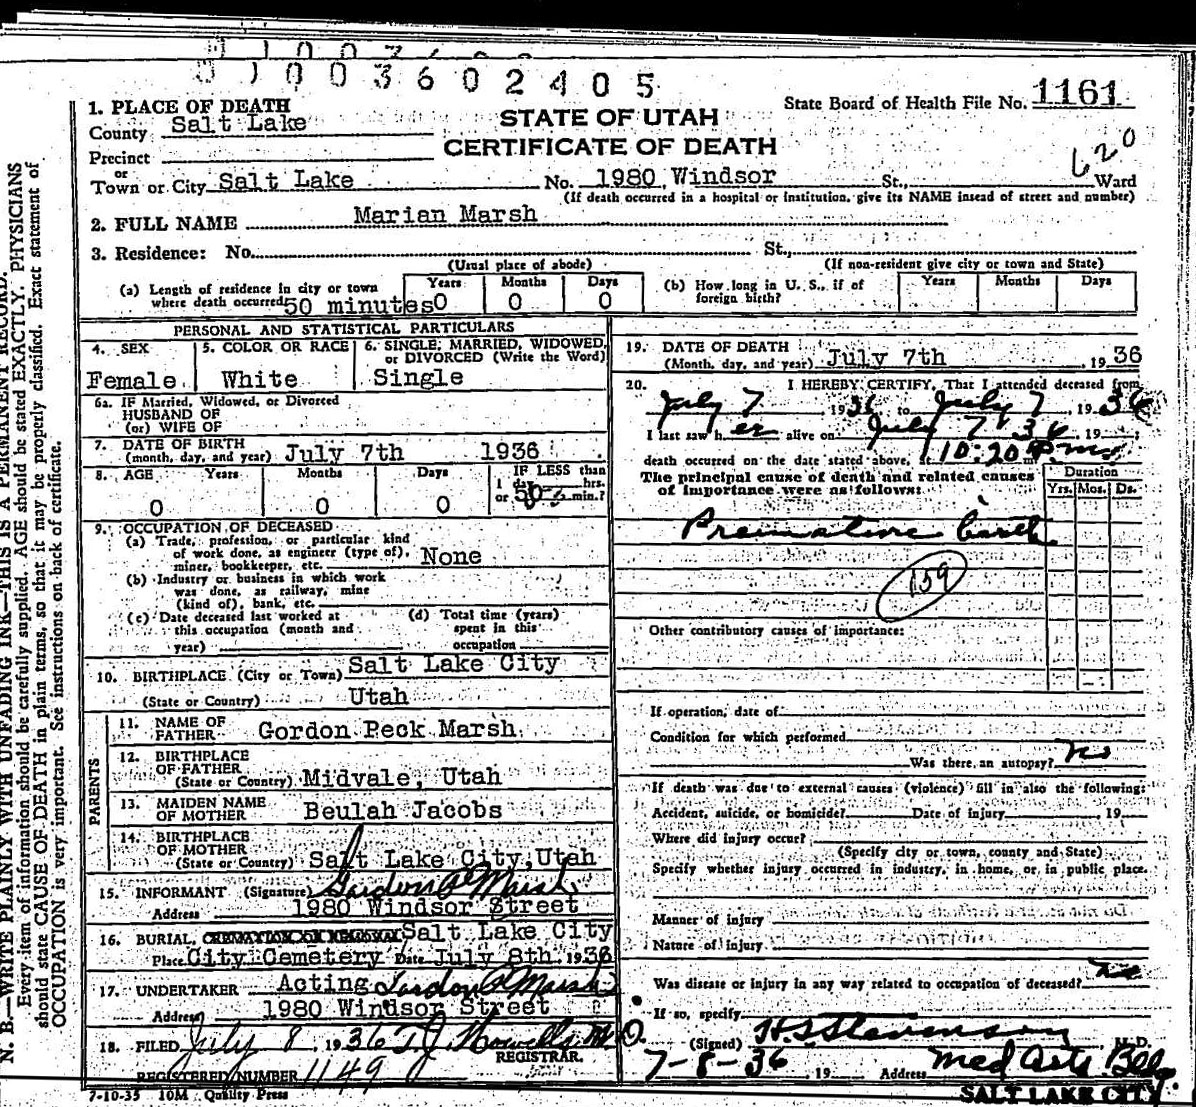 01003602405
1. PLACE OF DEATH
County Salt Lake
STATE OF UTAH
CERTIFICATE OF DEATH
State Board of Health File No. 1161
Precinct
or
Town or City Salt Lake No. 1980 Windsor St., Ward
620
(If death occurred in a hospital or institution, give its NAME insead of street and number)
2. FULL NAME Marian Marsh
3. Residence: No. St.,
(Usual place of abode) (If non-resident give city or town and State)
(a) Length of residence in city or town where death occurred 50 minutes Years 0 Months 0 Days 0
(b) How long in U. S., if of foreign birth? Years Months Days
PERSONAL AND STATISTICAL PARTICULARS
4. SEX Female
5. COLOR OR RACE White
6. SINGLE, MARRIED, WIDOWED, or DIVORCED (Write the Word) Single
6a. IF Married, Widowed, or Divorced
HUSBAND OF
(or) WIFE OF
7. DATE OF BIRTH
(month, day, and year) July 7th 1936
8. AGE Years 0 Months 0 Days 0
IF LESS than
1 day hrs.
or 50 min.?
9. OCCUPATION OF DECEASED
(a) Trade, profession, or particular kind
of work done, as engineer (type of),
miner, bookkeeper, etc. None
(b) Industry or business in which work
was done, as railway, mine
(kind of), bank, etc.
(c) Date deceased last worked at
this occupation (month and
year)
(d) Total time (years)
spent in this
occupation
10. BIRTHPLACE (City or Town) Salt Lake City
(State or Country) Utah
PARENTS
11. NAME OF FATHER Gordon Peck Marsh
12. BIRTHPLACE OF FATHER
(State or Country) Midvale, Utah
13. MAIDEN NAME OF MOTHER Beulah Jacobs
14. BIRTHPLACE OF MOTHER
(State or Country) Salt Lake City, Utah
15. INFORMANT (Signature) Gordon P Marsh
Address 1980 Windsor Street
16. BURIAL, CREMATION OR REMOVAL Salt Lake City
Place City Cemetery Date July 8th 1936
17. UNDERTAKER Acting Gordon P Marsh
Address 1980 Windsor Street
18. FILED July 8, 1936 T. J. Howells M.D.
REGISTRAR.
REGISTERED NUMBER 1149
7-10-35 10M Quality Press
19. DATE OF DEATH
(Month, day, and year) July 7th, 1936
20. I HEREBY CERTIFY, That I attended deceased from
July 7 1936 to July 7 1936
I last saw her alive on July 7 36 19
death occurred on the date stated above, at 10:20 P m.
The principal cause of death and related causes
of importance were as follows:
Duration
Yrs. Mos. Ds.
Premature birth
159
Other contributory causes of importance:
If operation, date of
Condition for which performed
Was there an autopsy? no
If death was due to external causes (violence) fill in also the following:
Accident, suicide, or homicide? Date of injury 19
Where did injury occur?
(Specify city or town, county and State)
Specify whether injury occurred in industry, in home, or in public place.
Manner of injury
Nature of injury
Was disease or injury in any way related to occupation of deceased? no
If so, specify
(Signed) H.S. Stevenson M. D.
7-8-36 19 Address Med Arts Bldg.
SALT LAKE CITY
N. B.—WRITE PLAINLY WITH UNFADING INK—THIS IS A PERMANENT RECORD.
Every item of information should be carefully supplied. AGE should be stated EXACTLY. PHYSICIANS
should state CAUSE OF DEATH in plain terms, so that it may be properly classified. Exact statement of
OCCUPATION is very important. See instructions on back of certificate.